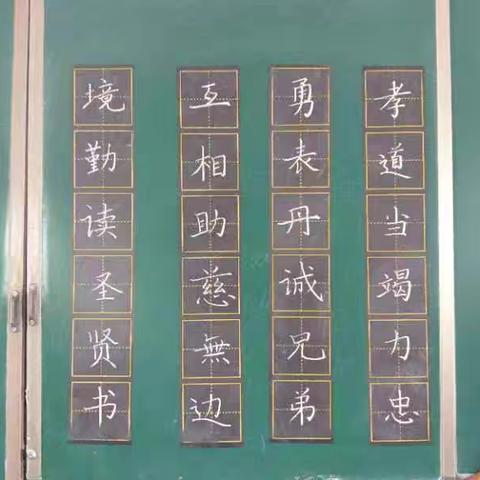 孝道当竭力忠
勇表丹诚兄弟
互相助慈無边
境勤读圣贤书